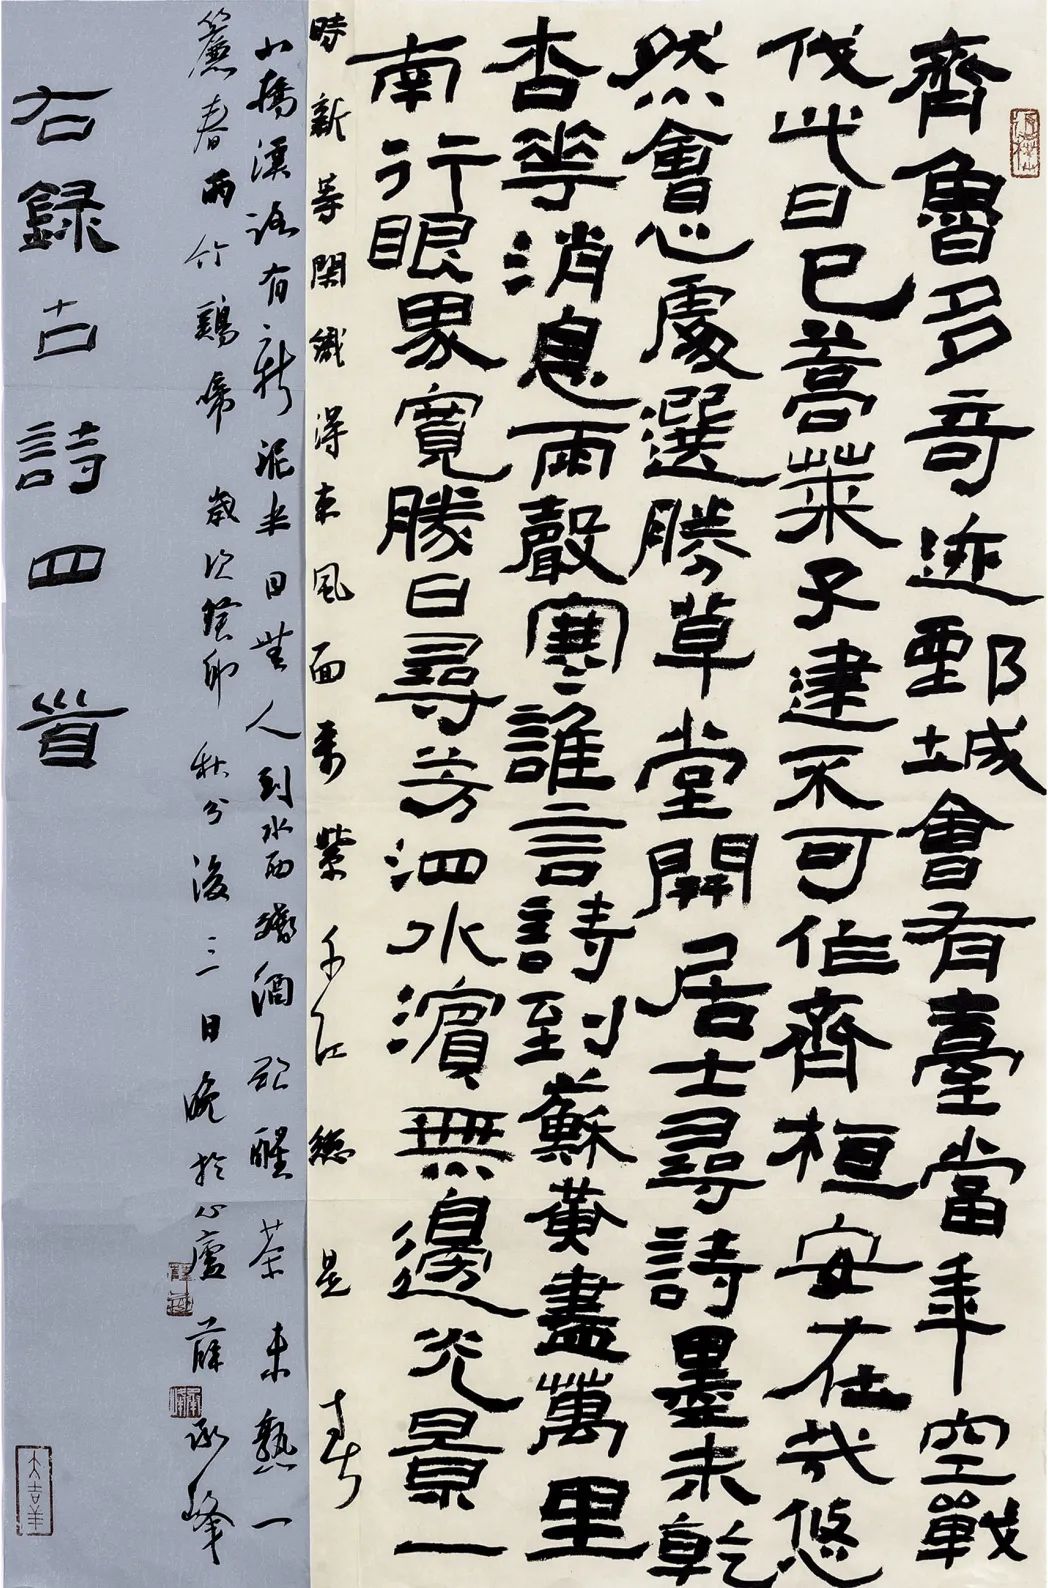 齊魯多奇迹鄄城會有臺當年空戰
伐此日已蒿萊子建不可作齊桓安在哉悠
然會心處選勝草堂開居士尋詩墨未乾
杏華消息雨聲寒誰言詩到蘇黃盡萬里
南行眼界寬勝日尋芳泗水濱無邊光景一
時新等閑識得東風面萬紫千紅總是春
小橋溪路有新泥半日無人到水西殘酒欲醒茶未熟一
簾春雨竹鷄啼 歲次癸卯秋分後三日晚於心廬薛承峰
右錄古詩四首
大吉羊